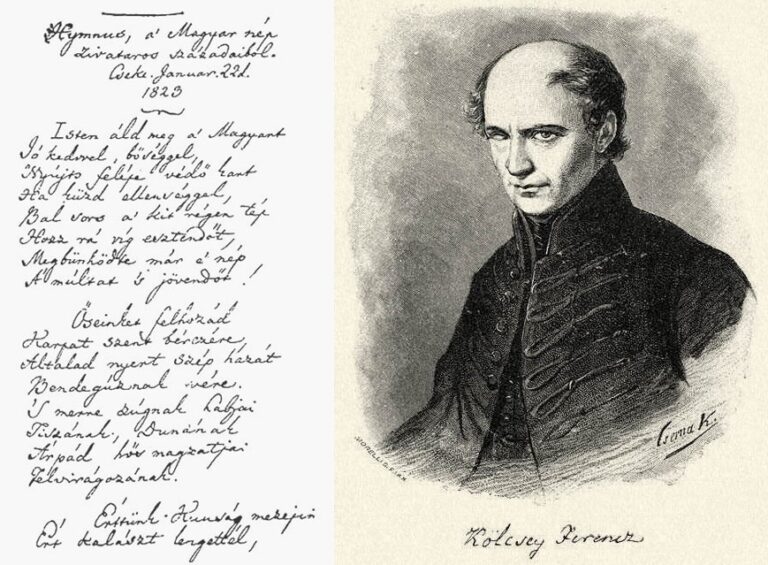 Hymnus, a' Magyar nép
zivataros századaiból.
Cseke. Januar. 22d.
1823
Isten áld meg a' Magyart
Jó kedvvel, bőséggel,
Nyújts feléje védő kart
Ha küzd ellenséggel,
Bal sors a' kit régen tép
Hozz rá víg esztendőt,
Megbünhödte már e' nép
A' múltat 's jövendőt!
Őseinket felhozád
Kárpát szent bérczére,
Általad nyert szép hazát
Bendegúznak vére.
'S merre zúgnak habjai
Tiszának, Dunának
Árpád hős magzatjai
Felvirágozának.
Értünk Kunság mezejin
Ért kalászt lengettél,
Cserna K.
MORELLI G. E.
Kölcsey Ferencz